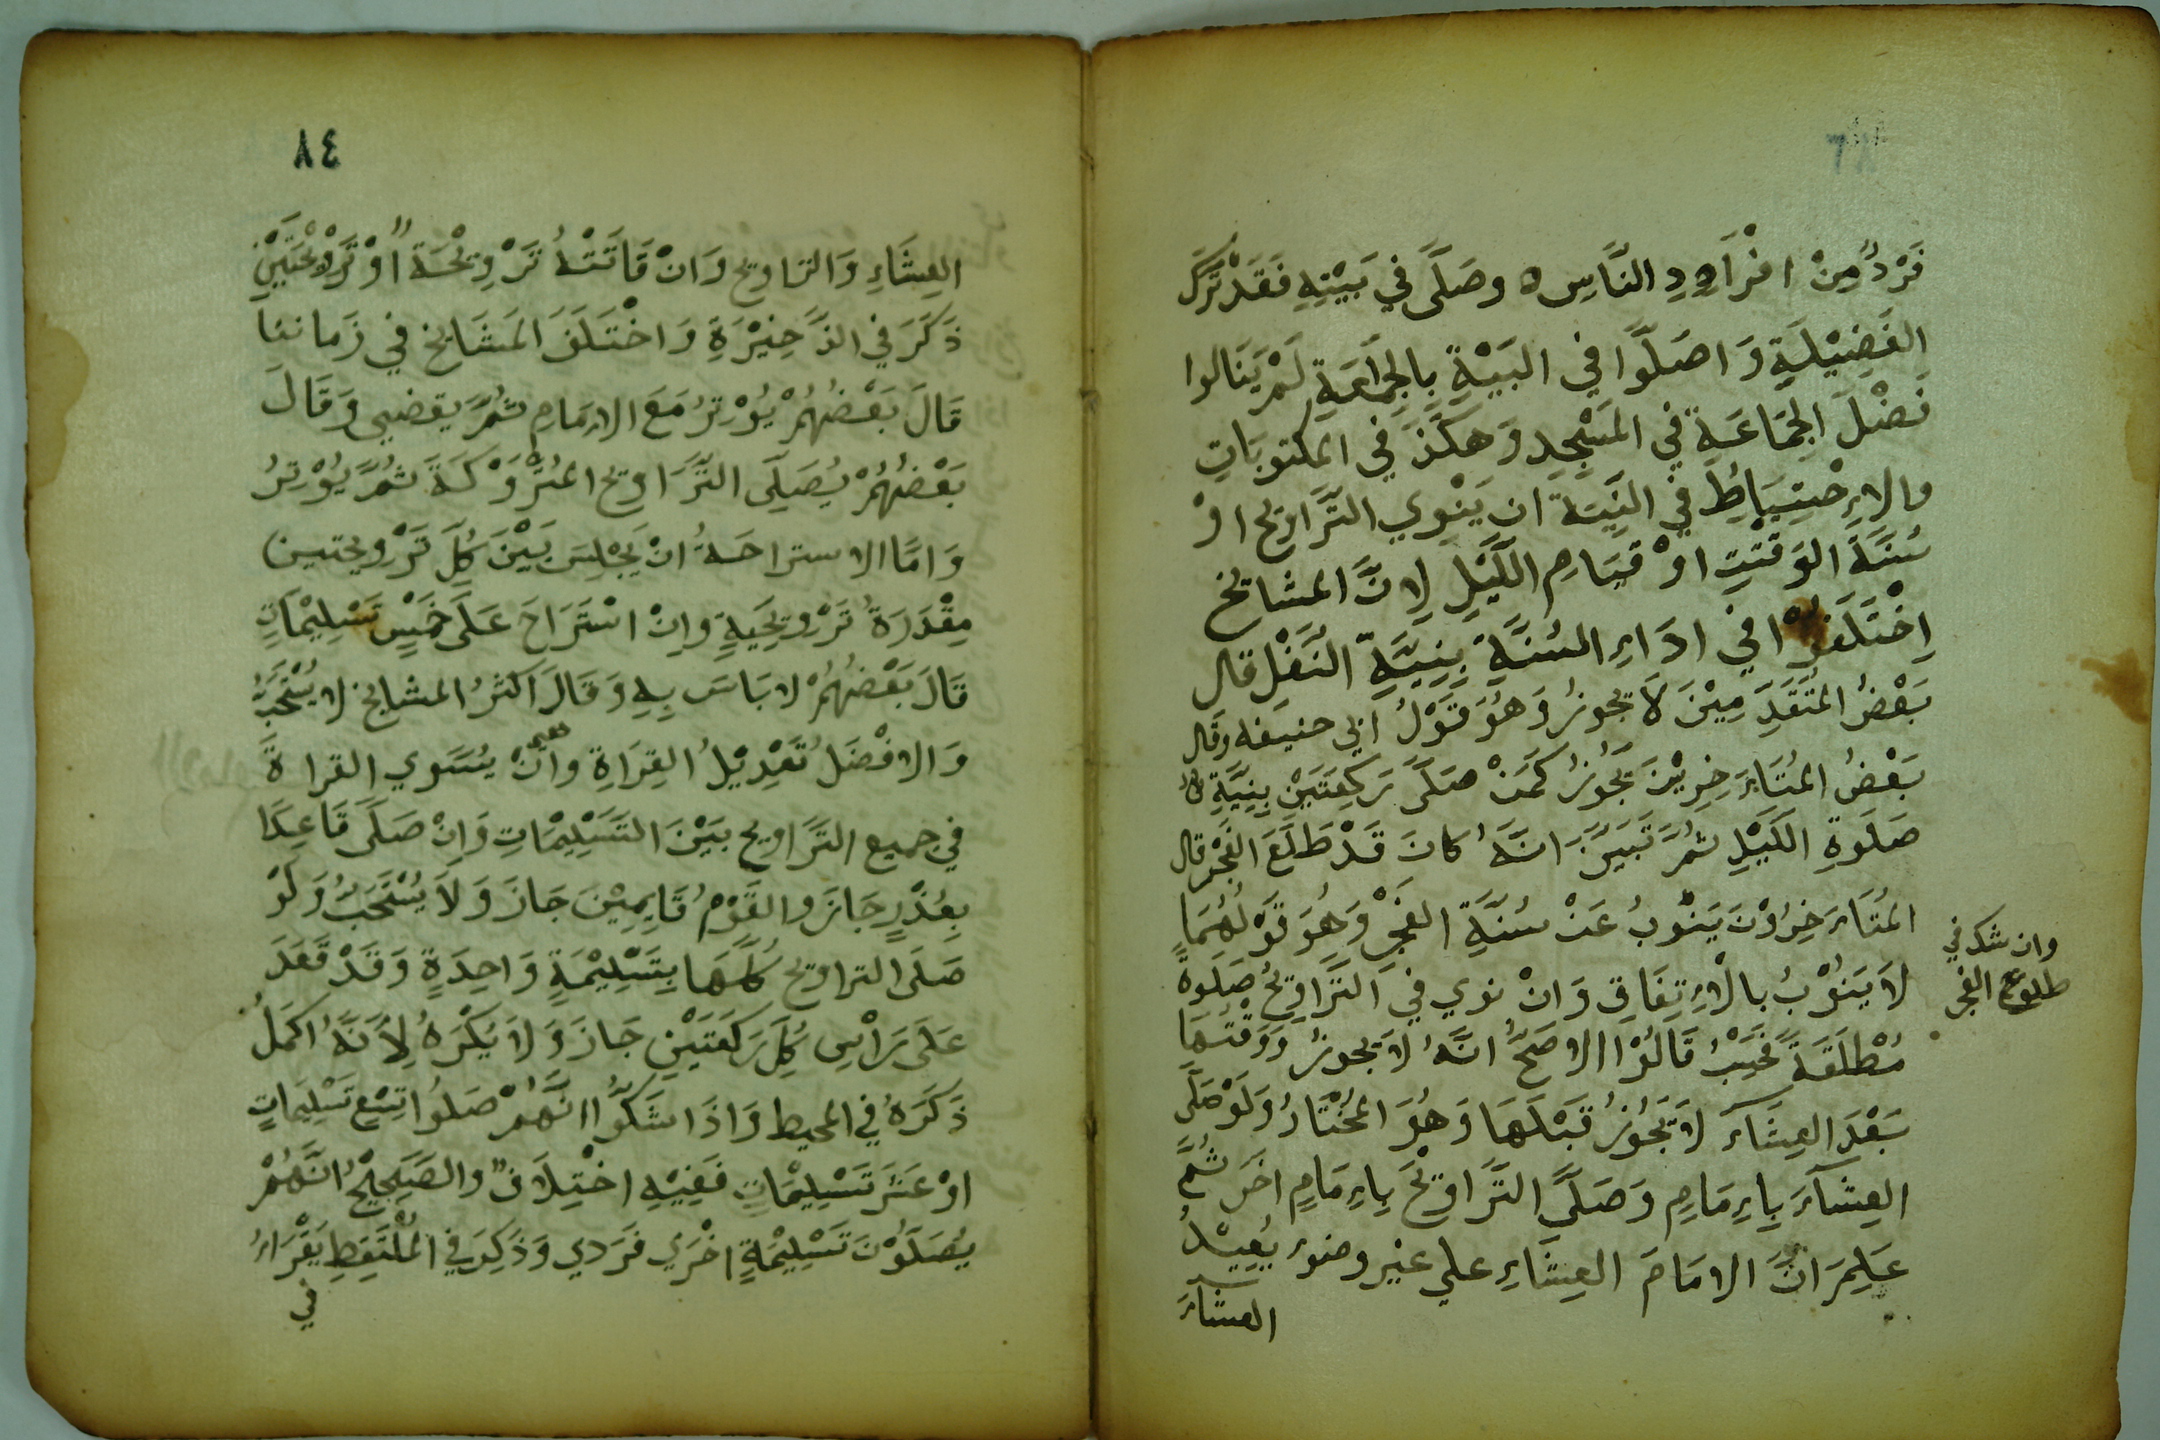 فَرْدٌ مِنْ افْرَادِ النَّاسِ ه وصَلَّى في بَيْتِهِ فَقَدْ تَرَكَ
الفَضِيْلَةِ وَاصَلَّوْا في البَيْةِ بِالجَمَاعَةِ لَمْ يَنَالوا
فَضْلَ الجَمَاعَةِ في المَسْجِدِ وَهَكَذَ في المكتوبَاتِ
والاءِحْتِيَاطِ في النِيَة ان يَنْوِي التَّرَاوِيح اوْ
سُنَّةَ الوَقْتِ اوْ قيَامِ اللَّيْلِ لِانَّ المشائخ
اِخْتَلَفُوْا في ادَاءِ السُنَّةِ بِنِيَّةِ النَفْلِ قال
بَعْضُ المُتَقَدِّمِيْنَ لَا يجوز وَهُوَ قَوْلُ ابي حنيفه وقال
بَعْضُ المُتَاءَخِرِيْنَ يَجُوْزُ كَمَنْ صَلَّى رَكعَتَيْنِ بِنِيَّةِ
صَلَوةِ اللَيْلِ ثمَّ تَبَيَّنَ انَّهُ كانَ قَدْ طَلَعَ الفَجْرُ قال
المُتَاءَخِرُوْنَ يَنُوْبُ عَنْ سُنَّةِ الفَجْرِ وَهُوَ قَوْلُهُمَا
وان شك في
طلوع الفجر
لَا يَنُوْبُ بالْاءِتِفَاقِ وَانْ نوي في التَرَاوِيْحُ صَلَوةً
مُطْلَقَةً فَحَيْبُ قَالُوْا الاصَحُّ انَّهُ لَا يجوزُ وَوَقْتُهَا
بَعْدَ العِشَآءَ لَا يَجُوْزُ قَبْلَهَا وَهُوَ المُخْتَارُ وَلَوْ صَلَّى
العِشَآءَ بِاءِمَامِ وَصَلَّى التَّرَاوِيْحَ بِاءِمَامِ اخَرَ ثُمَّ
عَلِمَ انَّ الامَامَ العِشَاءِ علي غير وضوء يُعِيْدُ
العشآءَ
٨٤
العِشَاءِ وَالتراويح وَانْ فَاتَتْهُ تَرْوِيْحَةً اوْ تَرْوِيْحَتَيْنِ
ذَكَرَ في الذَّخِيْرَةِ وَاخْتَلَفَ المَشَايخ في زَماننا
قَالَ بَعْضُهُمْ يُوْتِرُ مَعَ الاءِمَامِ ثمَّ يَقضيي وَقَالَ
بَعْضُهُمْ يُصَلِّي التَّرَاويح المُتْرَوْكَةَ ثُمَّ يُوْتِرُ
وَامَّا الاستراحَةُ انْ يَجْلِسَ بَيْنَ كُلِّ تَرْوِيحتين
مِقْدَرَةُ تَرْوِيْحَيةٍ وانِ اسْتَرَاحَ عَلَى خَمْسِ تَسْلِيْمَاتِ
قَالَ بَعْضُهُمْ لا بَاسَ بِهِ وَقَالَ اكثرُ المشايخ لا يُسْتَحَبُّ
وَالافْضَلُ تَعْدِيْلُ القِرَاةِ وانْ يُسَوي القراةَ
في جميع التَّرَاويح بَيْنَ التَسْلِيْمَاتِ وَانْ صَلَّى قَاعِدًا
بِعُذْرٍ جَازَ والقَوْمُ قَايِمِيْنَ جَازَ وَلَا يُسْتَحَبُّ وَلَوْ
صَلَّى التراويح كُلَّهَا بِتَسْلِيْمَةٍ وَاحِدَةٍ وَقَدْ قَعَدَ
عَلَى رَاْسِ كُلِّ رَكعَتَيْنِ جَازَ وَلَا يُكْرَهُ لِاَنَّهُ اكمَلُ
ذَكَرَهُ في المحيط وَاذَا شَكُّوا انَّهُمْ صَلُوا تِسْع تَسْلِيمَاتٍ
اوْ عَشَرَ تَسْلِيْمَاتٍ فَفِيْهِ اخْتِلَافٌ والصَحِيْحُ انَّهُمْ
يُصَلُّوْنَ تَسْلِيْمَةٍ اخْرَي فرَدي وَذَكِرَ في المُلْتَقِطِ يَقْرَاءُ
في